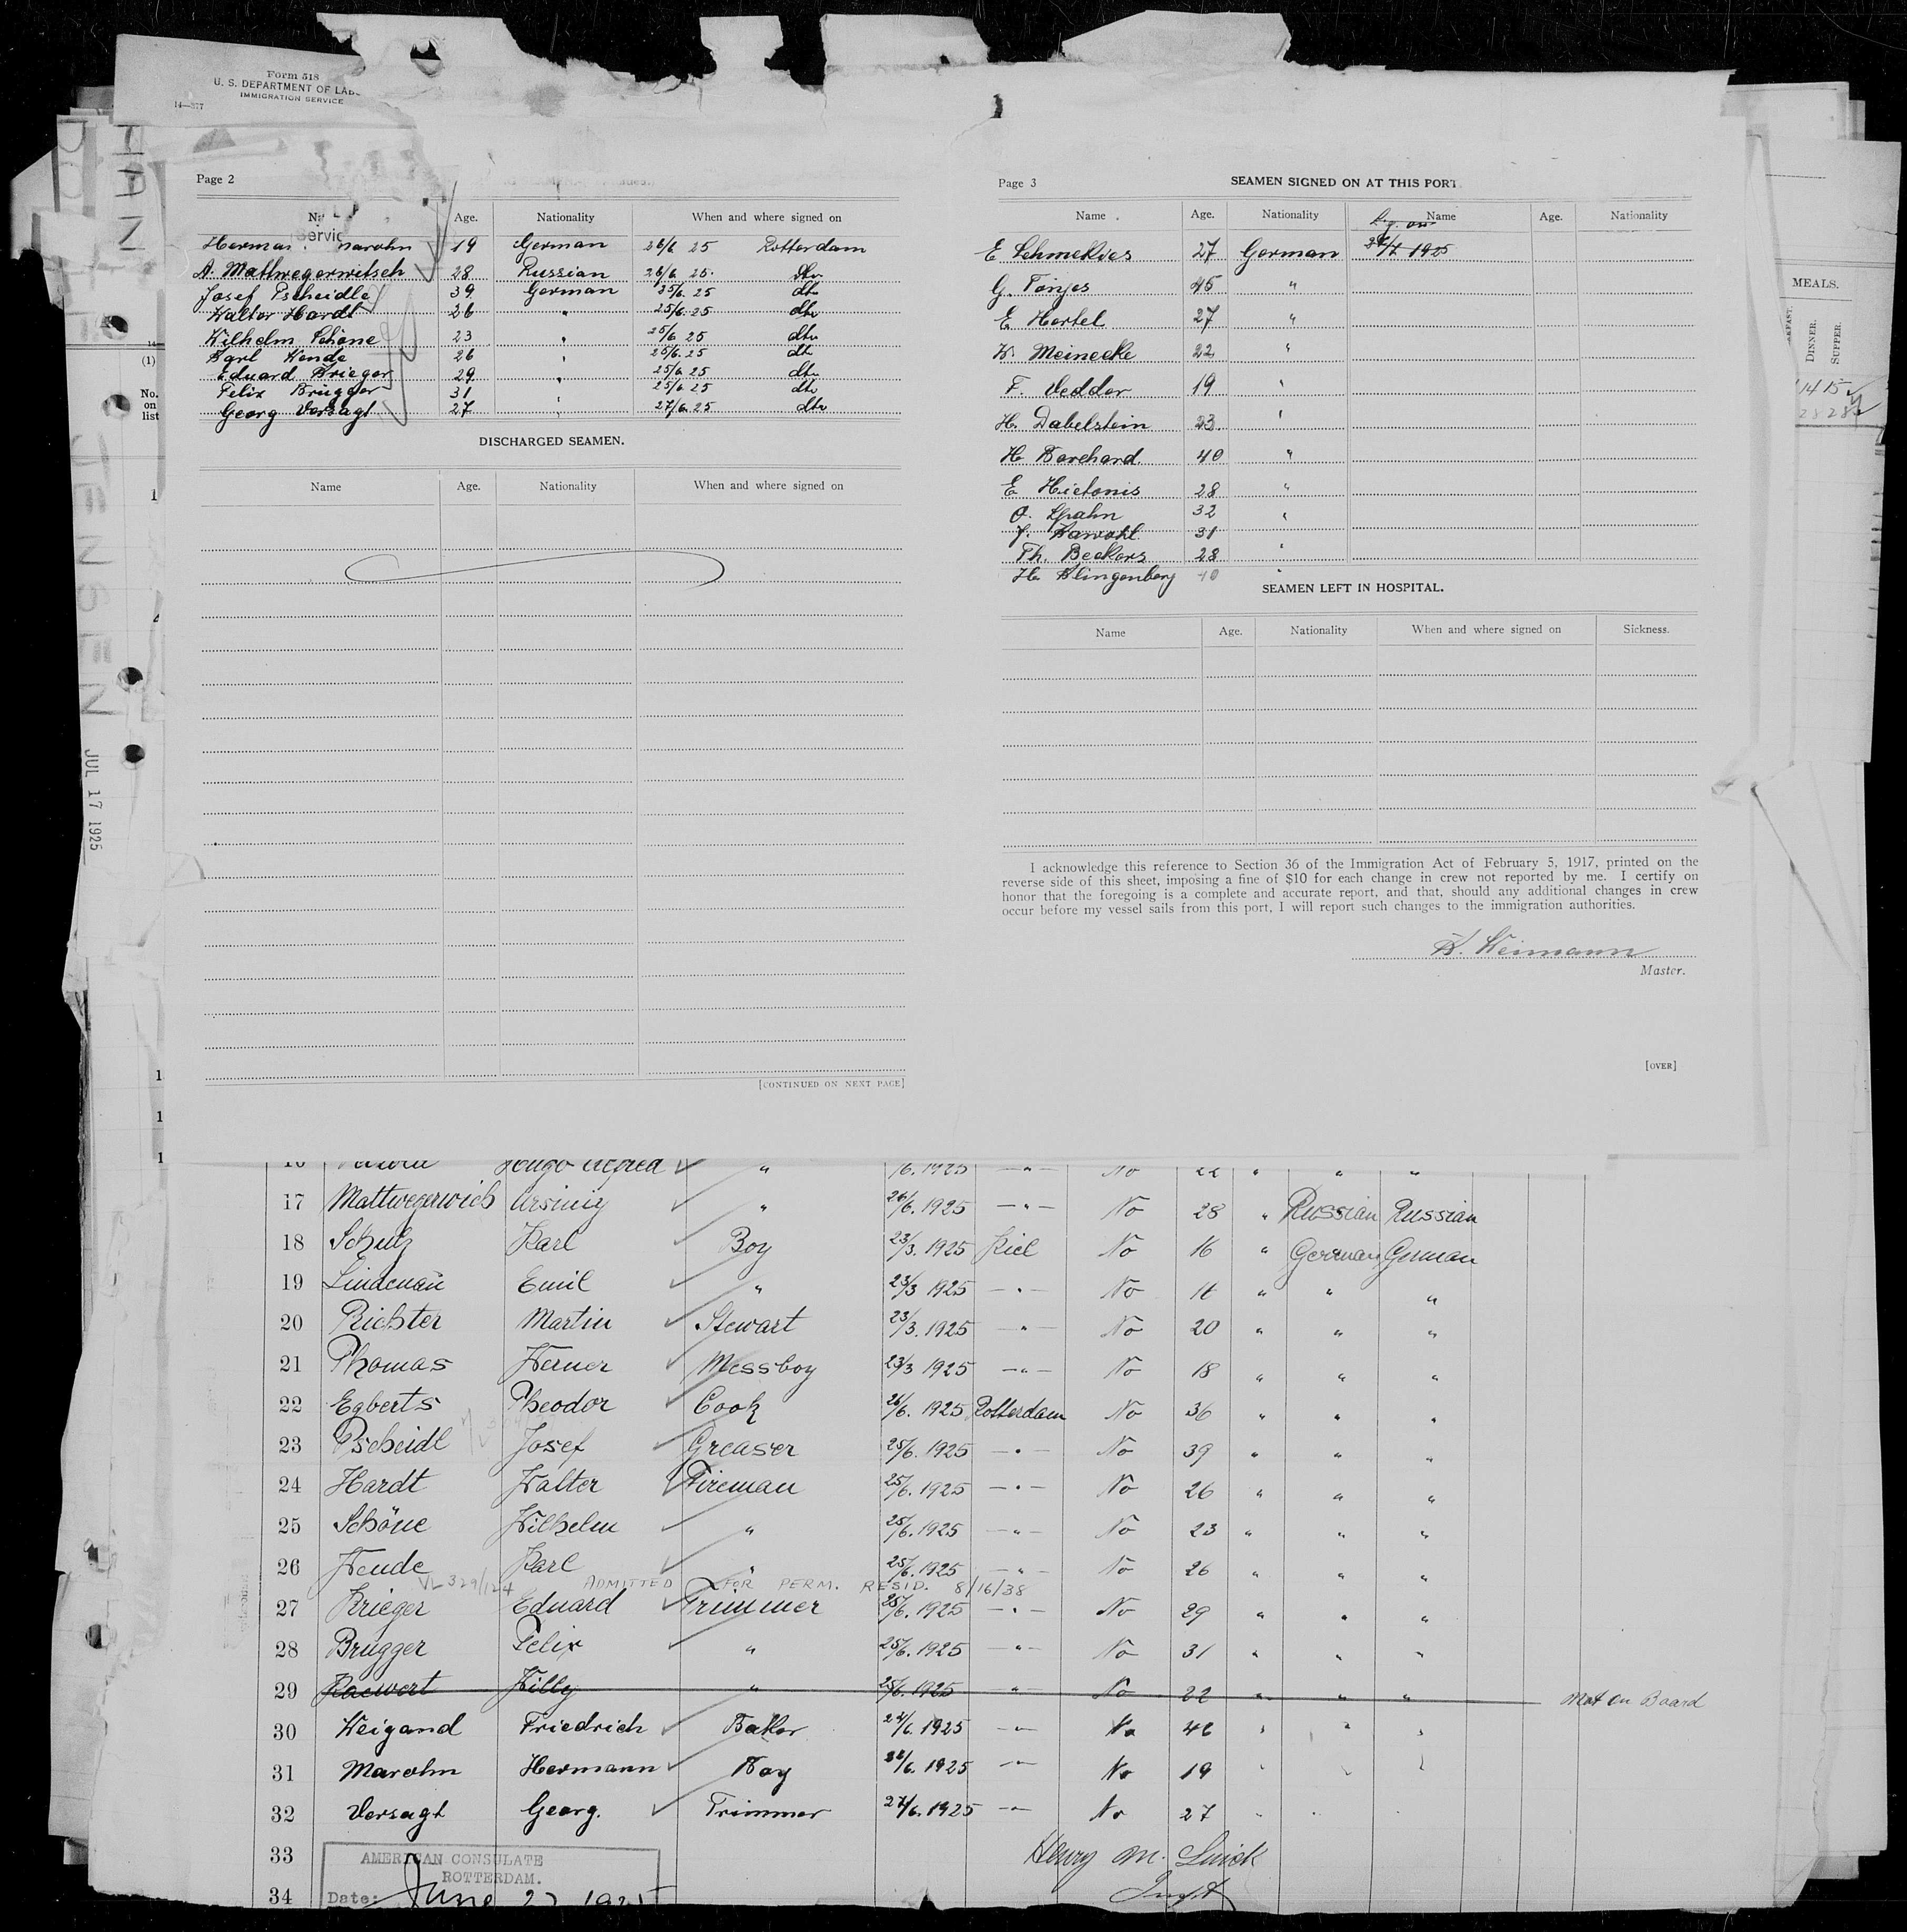 Form 518
U. S. DEPARTMENT OF LAB
IMMIGRATION SERVICE
14—377
Page 2
Age. Nationality When and where signed on
Servic
Herman marohn 19 German 26/6 25 Rotterdam
A. Mattwegerwitsch 28 Russian 26/6 25. dto
Josef Pscheidle 39 German 25/6. 25 dto
Walter Hardt 26 " 25/6. 25 dto
Wilhelm Schöne 23 " 25/6 25 dto
Karl Wende 26 " 25/6. 25 dto
Eduard Krieger 29 " 25/6 25 dto
Felix Brugger 31 " 25/6 25 dto
Georg Versagt 27 " 27/6. 25 dto
DISCHARGED SEAMEN.
Name Age. Nationality When and where signed on
[CONTINUED ON NEXT PAGE]
Page 3 SEAMEN SIGNED ON AT THIS PORT
Name Age. Nationality Name Age. Nationality
E Schmekies 27 German 1925
G. Tönjes 45 "
E Hertel 27 "
W. Meinecke 22 "
F. Vedder 19 "
H. Dabelstein 23 "
H. Borchard 40 "
E. Hietonis 28 "
O. Spahn 32 "
J. Kawohl 31
Th. Beckers 28 "
H. Klingenberg 40 "
SEAMEN LEFT IN HOSPITAL.
Name Age. Nationality When and where signed on Sickness.
I acknowledge this reference to Section 36 of the Immigration Act of February 5, 1917, printed on the
reverse side of this sheet, imposing a fine of $10 for each change in crew not reported by me. I certify on
honor that the foregoing is a complete and accurate report, and that, should any additional changes in crew
occur before my vessel sails from this port, I will report such changes to the immigration authorities.
K. Weimann
Master.
[OVER]
MEALS.
DINNER.
SUPPER.
14 15
28 28
JENSEN
JUL 17 1925
(1)
No.
on
list
Hugo Alfred " /6. 1925 — " — No 22 " " "
17 Mattwegerwich Arsinij " 26/6. 1925 — " — No 28 " Russian Russian
18 Schulz Karl Boy 23/3. 1925 Kiel No 16 " German German
19 Lindenau Emil " 23/3 1925 — " — No 16 " " "
20 Richter Martin Stewart 23/3. 1925 — " — No 20 " " "
21 Thomas Werner Messboy 23/3 1925 — " — No 18 " " "
22 Egberts Theodor Cook 26/6. 1925 Rotterdam No 36 " " "
23 Pscheidl Josef Greaser 25/6. 1925 — " — No 39 " " "
24 Hardt Walter Fireman 25/6. 1925 — " — No 26 " " "
25 Schöne Wilhelm " 25/6. 1925 — " — No 23 " " "
26 Wende Karl " 25/6. 1925 — " — No 26 " " "
VL 329/124 ADMITTED FOR PERM. RESID. 8/16/38
27 Krieger Eduard Trimmer 25/6. 1925 — " — No 29 " " "
28 Brugger Felix " 25/6. 1925 — " — No 31 " " "
29 Raewert Willy " 25/6. 1925 " No 22 " " " Not on Board
30 Weigand Friedrich Baker 24/6. 1925 — " — No 46 " " "
31 Marohn Hermann Boy 26/6. 1925 — " — No 19 " " "
32 Versagt Georg. Trimmer 27/6. 1925 — " — No 27 " " "
33 Henry M. Linick
34 Inspt
AMERICAN CONSULATE
ROTTERDAM.
Date: June 27 1925